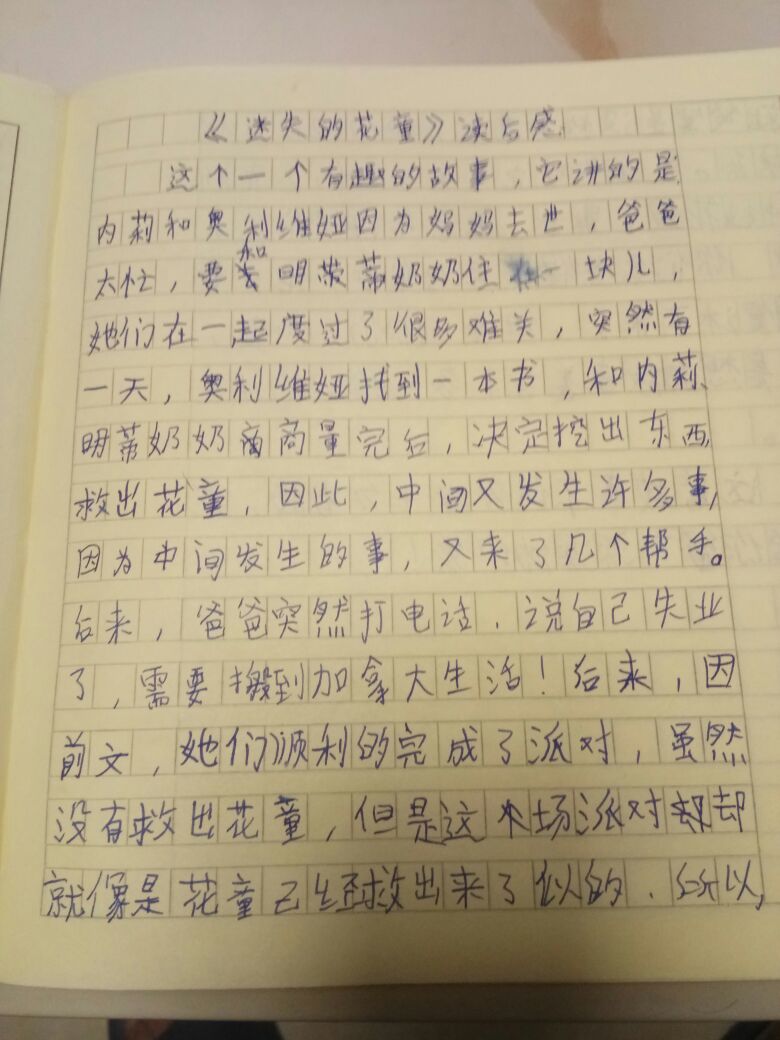 《迷失的花童》读后感
这个一个有趣的故事，它讲的是
内莉和奥利维娅因为妈妈去世，爸爸
太忙，要和明蒂蒂奶奶住在一块儿，
她们在一起度过了很多难关，突然有
一天，奥利维娅找到一本书，和内莉、
明蒂奶奶商商量完后，决定挖出东西，
救出花童，因此，中间又发生许多事，
因为中间发生的事，又来了几个帮手。
后来，爸爸突然打电话，说自己失业
了，需要搬到加拿大生活！后来，因
前文，她们顺利的完成了派对，虽然
没有救出花童，但是这场派对却却
就像是花童已经救出来了似的，所以，